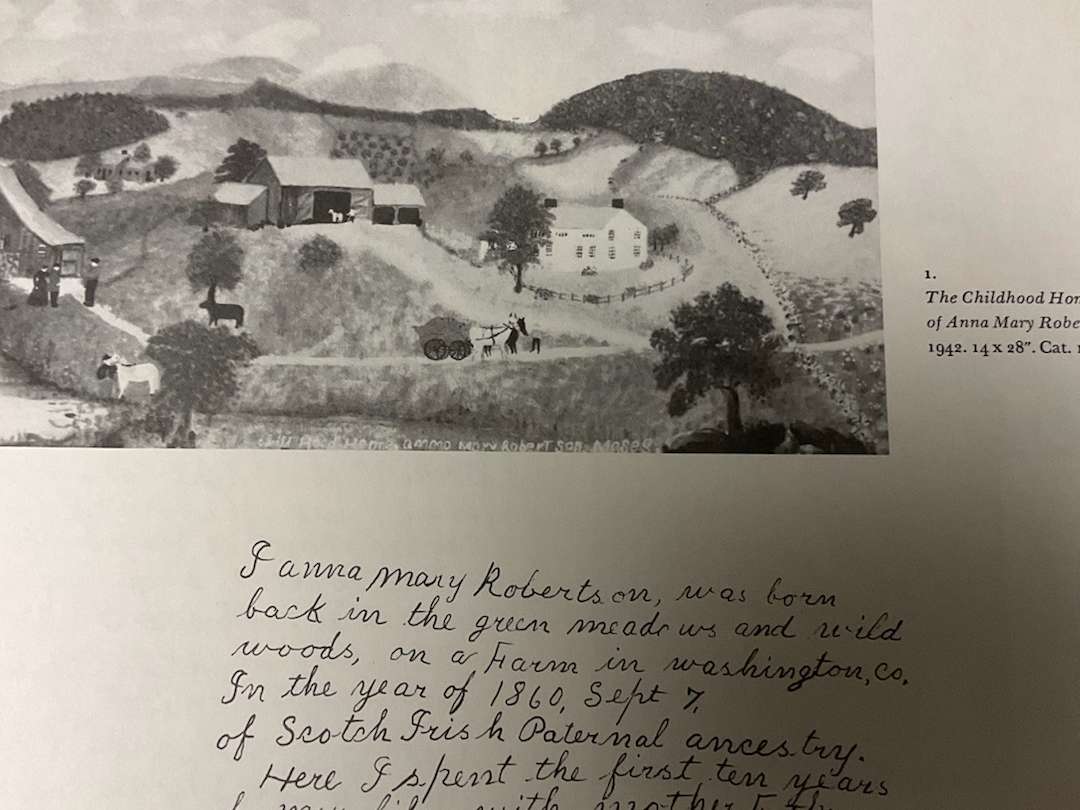 Home, anna mary Robertson, Moses
1.
The Childhood Hom
of Anna Mary Robe
1942. 14 x 28". Cat.
I anna mary Robertson, was born
back in the green meadows and wild
woods, on a Farm in washington, co.
In the year of 1860, Sept 7,
of Scotch Irish Paternal ancestry.
Here I spent the first ten years
with mother